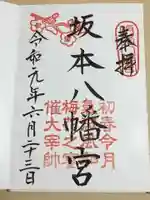 奉拝
坂本八幡宮
初春令月
梅花之宴
催大宰帥
令和元年六月二十三日